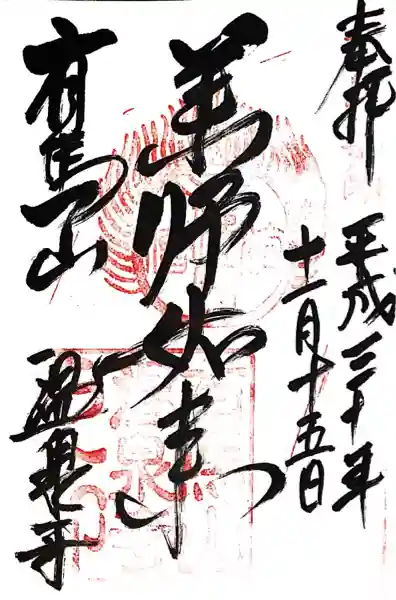 奉拝
平成三十年
十一月十五日
薬師如来
有馬山
温泉寺